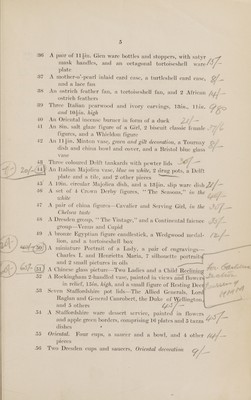 5
36 A pair of 11½in. Glen ware bottles and stoppers, with satyr
mask handles, and an octagonal tortoiseshell ware
plate
37 A mother-o'-pearl inlaid card case, a turtleshell card case,
and a lace fan
38 An ostrich feather fan, a tortoiseshell fan, and 2 African
ostrich feathers
39 Three Italian pearwood and ivory carvings,
and 10½in. high
40 An Oriental incense burner in form of a duck
41 An 8in. salt glaze figure of a Girl, 2 biscuit classic female
figures, and a Whieldon figure
42 An 11 in. Minton vase, green and gilt decoration, a Tournay
dish and china bowl and cover, and a Bristol blue glass
vase
43 Three coloured Delft tankards with pewter lids
44 An Italian Majolica vase, blue on white, 2 drug pots, a Delft
plate and a tile, and 2 other pieces
45 A 10in. circular Majolica dish, and a 13½in. dip ware dish
46 A set of 4 Crown Derby figures, "The Seasons," in the
white
47 A pair of china figures—Cavalier and Serving Girl, in the
Chelsea taste
48 A Dresden group, "The Vintage," and a Continental faience
group—Venus and Cupid
49 A bronze Egyptian figure candlestick, a Wedgwood medallion, and a tortoiseshell box
50 A miniature Portrait of a Lady, a pair of engravings—
Charles I. and Henrietta Maria, 7 silhouette portraits
and 2 small pictures in oils
51 A Chinese glass picture—Two Ladies and a Child Reclining
52 A Rockingham 2-handled vase, painted in views and flowers
in relief, 13in. high, and a small figure of Resting Deer
53 Seven Staffordshire pot lids—The Allied Generals, Lord
Raglan and General Canrobert, the Duke of Wellington
and 5 others
54 A Staffordshire ware dessert service, painted in flowers
and apple green borders, comprising 16 plates and 5 tazza
dishes
55 Oriental. Four cups, a saucer and a bowl, and 4 other
pieces
56 Two Dresden cups and saucers, Oriental decoration